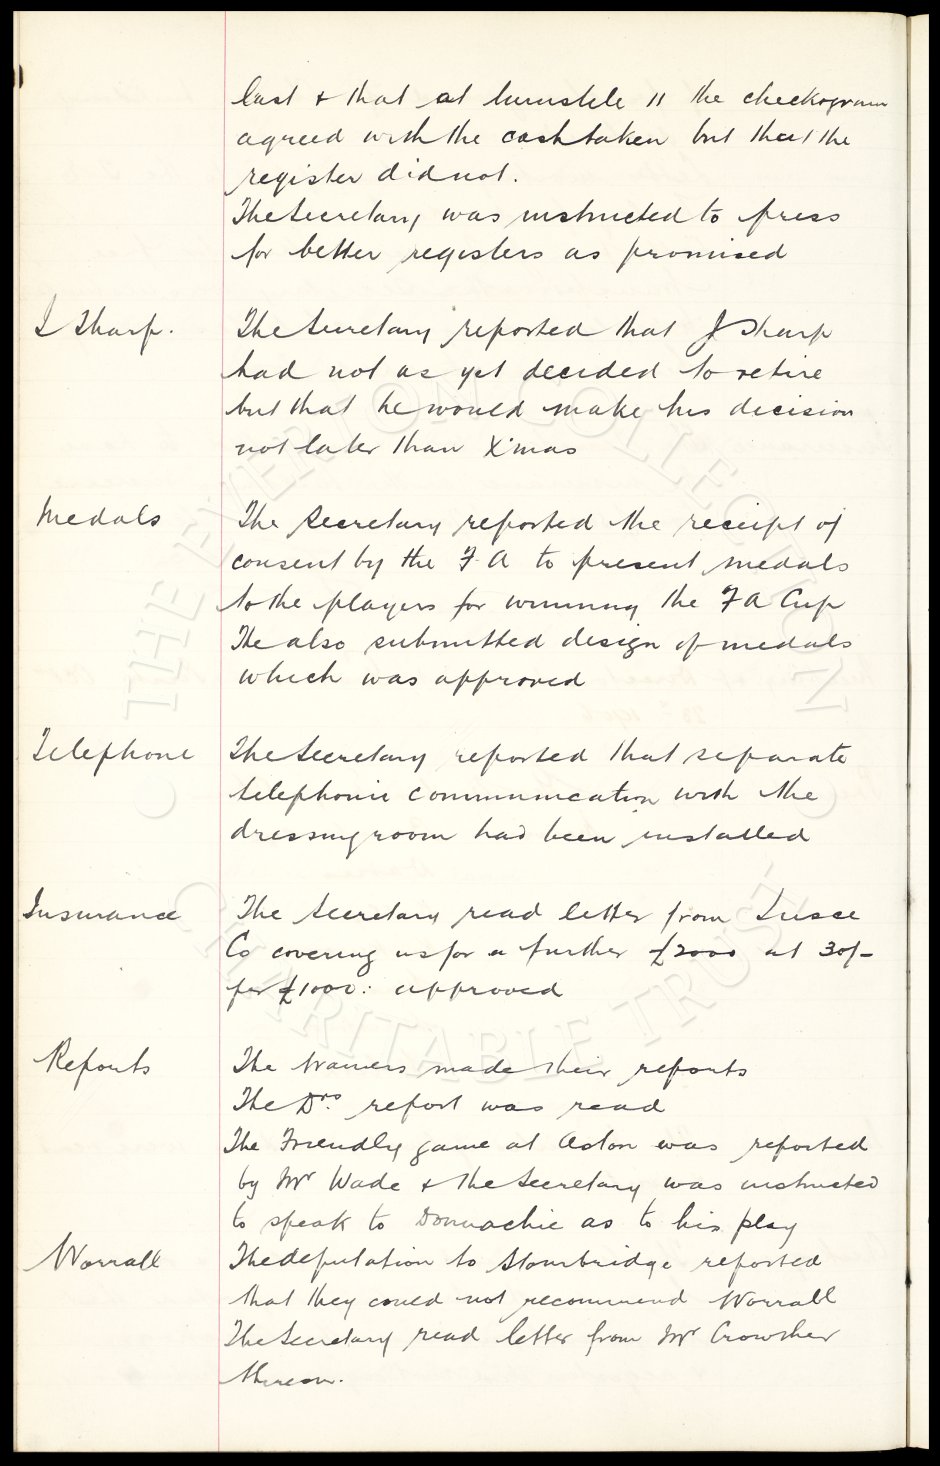 last & that at turnstile 11 the checkogram
agreed with the cash taken but that the
register did not.
The Secretary was instructed to press
for better registers as promised
J Sharp.
The Secretary reported that J Sharp
had not as yet decided to retire
but that he would make his decision
not later than X'mas
Medals
The Secretary reported the receipt of
consent by the F A to present medals
to the players for winning the F A Cup
He also submitted design of medals
which was approved
Telephone
The Secretary reported that separate
telephonic communication with the
dressing room had been installed
Insurance
The Secretary read letter from Insce
Co covering us for a further £2000 at 30/-
per £1000: approved
Reports
The trainers made their reports
The Drs. report was read
The Friendly game at Aston was reported
by Mr Wade & the Secretary was instructed
to speak to Donnachie as to his play
Worrall
The deputation to Stourbridge reported
that they could not recommend Worrall
The Secretary read letter from Mr Crowther
thereon.
© THE EVERTON COLLECTION
CHARITABLE TRUST